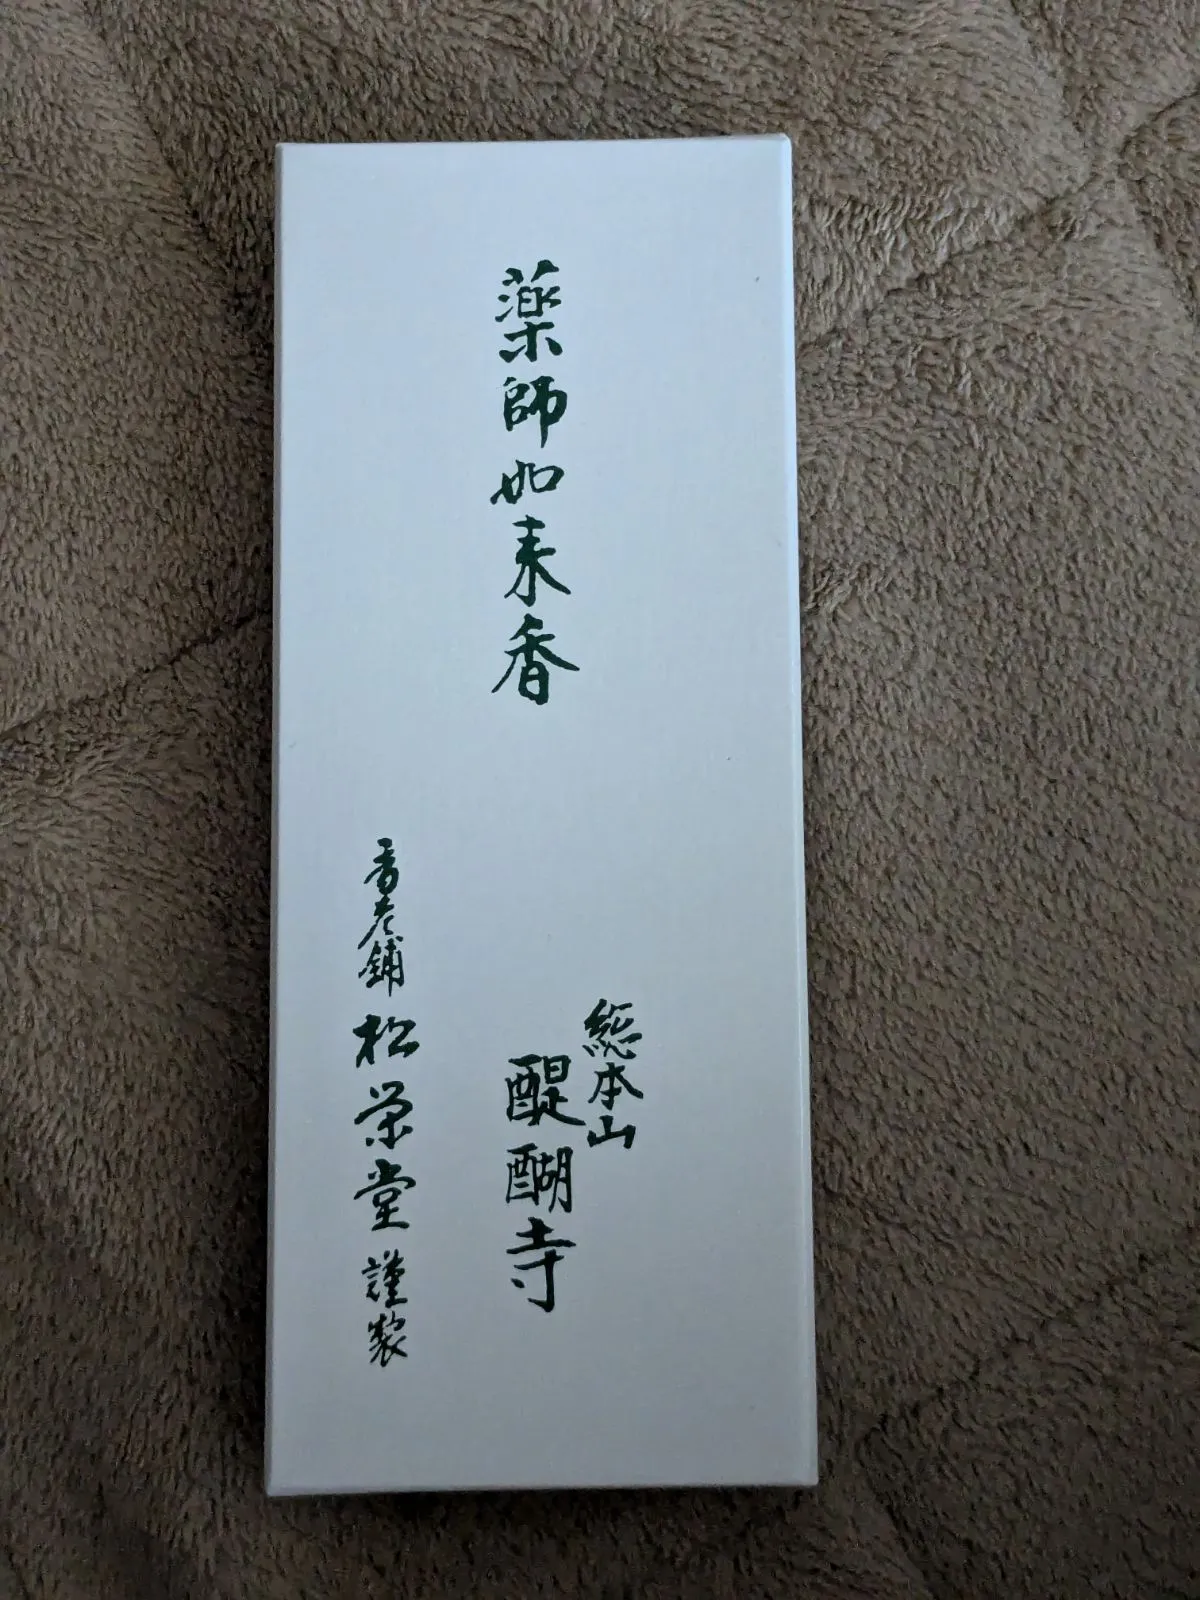 薬師如来香
総本山
醍醐寺
香老舗 松栄堂 謹製